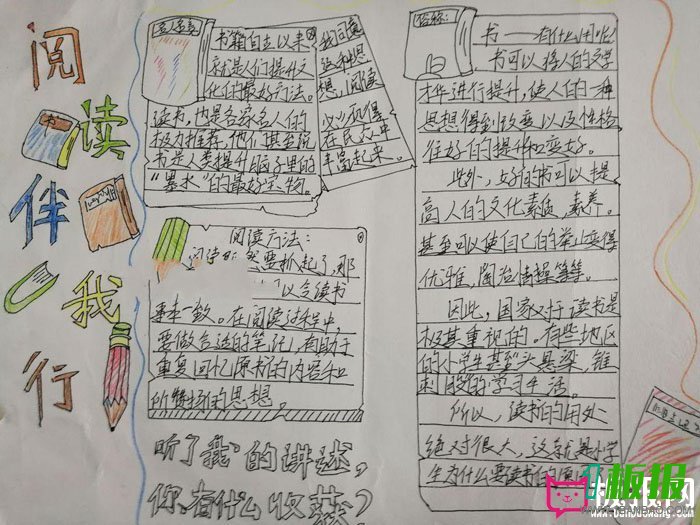 阅
读
伴
我
行
名人名言
书籍自古以来
就是人们提升文
化的最好方法。
读书，也是各家名人的
极力推荐，他们甚至说
书是人类提升脑子里的
“墨水”的最好宝物。
我同意
这种思
想，阅读
以必须得
在民众中
丰富起来。
阅读方法：
阅读 然要抓起了，那
以会读书
事本一数。在阅读过程中，
要做合适的笔记，有助于
重复回忆原书的内容和
所 的思想。
听了我的讲述，
你有什么收获？
总结：
书——有什么用呢？
书可以将人的文学
才华进行提升，使人的一种
思想得到改变以及性格
往好的提升和变好。
此外，好的书可以提
高人的文化素质、素养。
甚至可以使自己的举止变得
优雅，陶冶情操等等。
因此，国家对于读书是
极其重视的。有些地区
的小学生甚至“头悬梁，锥
刺股”的学习生活。
所以，读书的用处
绝对很大，这就是小学
生为什么要读书的原
板报网
www.banbaowang.com